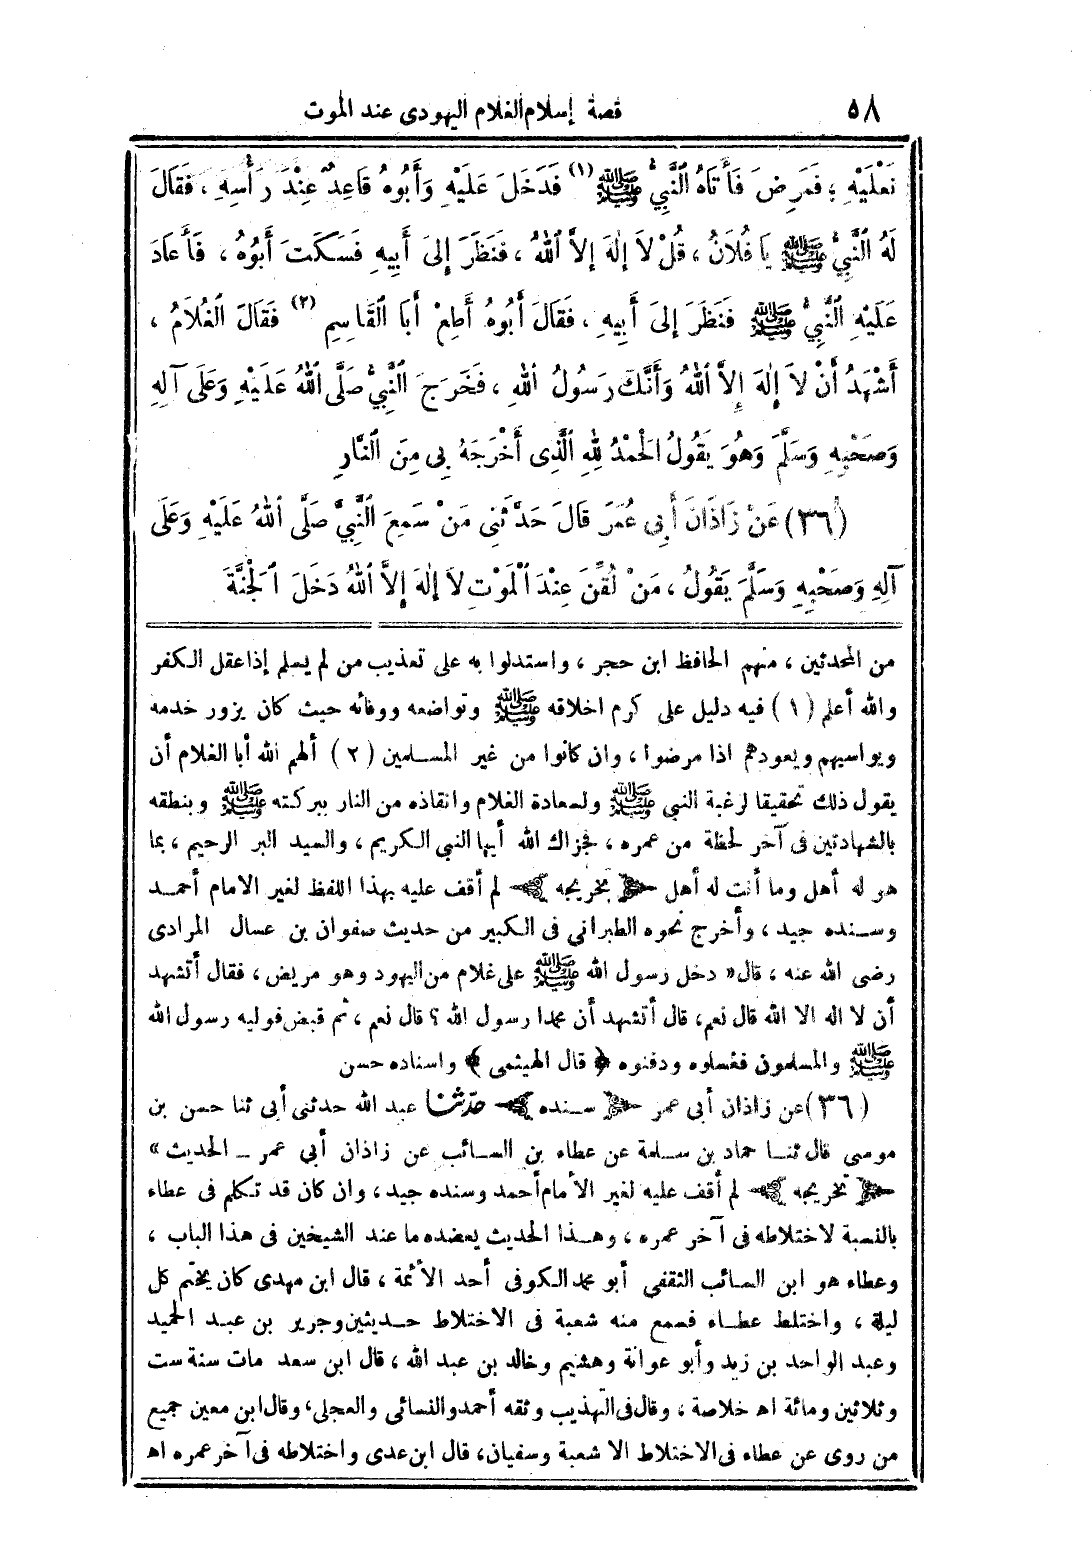 ٥٨ قصة إسلام الغلام اليهودى عند الموت
نَعْلَيْهِ ، فَمَرِضَ فَأَتَاهُ ٱلنَّبِيُّ ﷺ (١) فَدَخَلَ عَلَيْهِ وَأَبُوهُ قَاعِدٌ عِنْدَ رَأْسِهِ ، فَقَالَ
لَهُ ٱلنَّبِيُّ ﷺ يَا فُلَانُ ، قُلْ لَا إِلٰهَ إلاَّ ٱللهُ ، فَنَظَرَ إِلَى أَبِيهِ فَسَكَتَ أَبُوهُ ، فَأَعَادَ
عَلَيْهِ ٱلنَّبِيُّ ﷺ فَنَظَرَ إلَى أَبِيهِ ، فَقَالَ أَبُوهُ أَطِعْ أَبَا ٱلْقَاسِمِ (٢) فَقَالَ ٱلْغُلَامُ ،
أَشْهَدُ أَنْ لَا إِلٰهَ إِلاَّ ٱللهُ وَأَنَّكَ رَسُولُ ٱللهِ ، فَخَرَجَ ٱلنَّبِيُّ صَلَّى ٱللهُ عَلَيْهِ وَعَلَى آلِهِ
وَصَحْبِهِ وَسَلَّمَ وَهُوَ يَقُولُ ٱلْحَمْدُ لِلهِ ٱلَّذِى أَخْرَجَهُ بِى مِنَ ٱلنَّارِ
(٣٦) عَنْ زَاذَانَ أَبِى عُمَرَ قَالَ حَدَّثَنِى مَنْ سَمِعَ ٱلنَّبِيَّ صَلَّى ٱللهُ عَلَيْهِ وَعَلَى
آلِهِ وَصَحْبِهِ وَسَلَّمَ يَقُولُ ، مَنْ لُقِّنَ عِنْدَ ٱلْمَوْتِ لَا إِلٰهَ إِلاَّ ٱللهُ دَخَلَ ٱلْجَنَّةَ
من المحدثين ، منهم الحافظ ابن حجر ، واستدلوا به على تعذيب من لم يسلم إذا عقل الكفر
والله أعلم (١) فيه دليل على كرم اخلاقه ﷺ وتواضعه ووفائه حيث كان يزور خدمه
ويواسيهم ويعودهم اذا مرضوا ، وان كانوا من غير المسلمين (٢) ألهم الله أبا الغلام أن
يقول ذلك تحقيقا لرغبة النبي ﷺ ولسعادة الغلام وانقاذه من النار ببركته ﷺ وبنطقه
بالشهادتين فى آخر لحظة من عمره ، فجزاك الله أيها النبى الكريم ، والسيد البر الرحيم ، بما
هو له أهل وما أنت له أهل ﴿ تخريجه ﴾ لم أقف عليه بهذا اللفظ لغير الامام أحمد
وسنده جيد ، وأخرج نحوه الطبرانى فى الكبير من حديث صفوان بن عسال المرادى
رضى الله عنه ، قال « دخل رسول الله ﷺ على غلام من اليهود وهو مريض ، فقال أتشهد
أن لا اله الا الله قال نعم، قال أتشهد أن محمدا رسول الله ؟ قال نعم ، ثم قبض فوليه رسول الله
ﷺ والمسلمون فغسلوه ودفنوه ﴿ قال الهيثمى ﴾ واسناده حسن
(٣٦) عن زاذان أبى عمر ﴿ سنده ﴾ حدثنا عبد الله حدثنى أبى ثنا حسن بن
موسى قال ثنا حماد بن سلمة عن عطاء بن السائب عن زاذان أبى عمر ــ الحديث »
﴿ تخريجه ﴾ لم أقف عليه لغير الأمام أحمد وسنده جيد ، وان كان قد تكلم فى عطاء
بالنسبة لاختلاطه فى آخر عمره ، وهذا الحديث يعضده ما عند الشيخين فى هذا الباب ،
وعطاء هو ابن السائب الثقفى أبو محمد الكوفى أحد الأئمة ، قال ابن مهدى كان يختم كل
ليلة ، واختلط عطاء فسمع منه شعبة فى الاختلاط حديثين وجرير بن عبد الحميد
وعبد الواحد بن زيد وأبو عوانة وهشيم وخالد بن عبد الله ، قال ابن سعد مات سنة ست
وثلاثين ومائة اه خلاصة ، وقال فى التهذيب وثقه أحمد والنسائى والعجلى، وقال ابن معين جميع
من روى عن عطاء فى الاختلاط الا شعبة وسفيان، قال ابن عدى واختلاطه فى آخر عمره اه